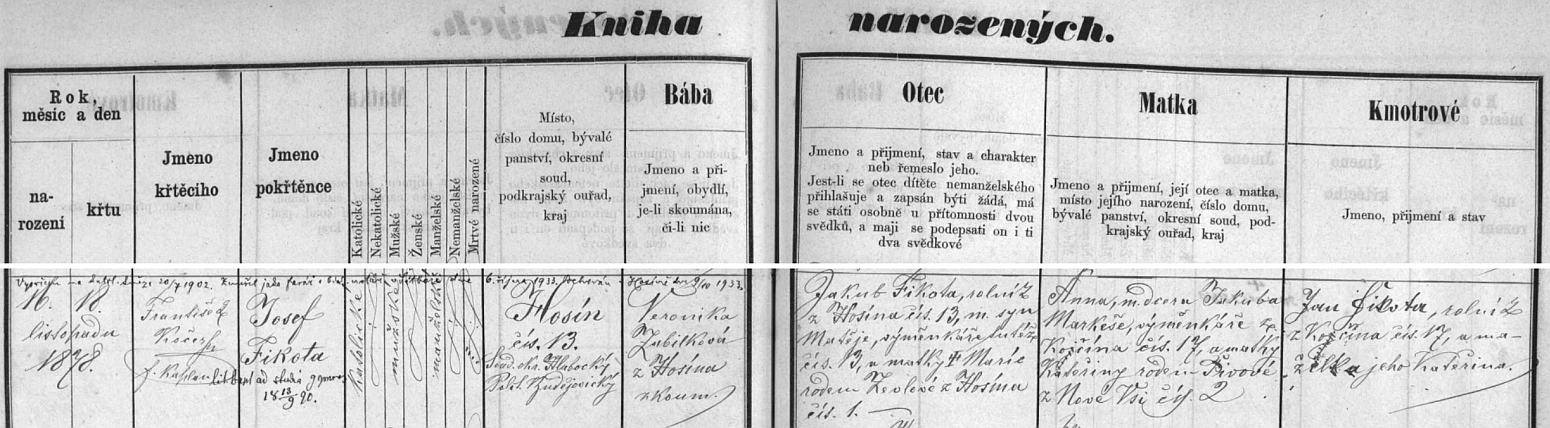 Kniha narozených.
Rok, měsíc a den
na-
rození
křtu
Jmeno
křtěcího
Jmeno
pokřtěnce
Katolické
Nekatolické
Mužské
Ženské
Manželské
Nemanželské
Mrtvě narozené
Místo,
číslo domu, bývalé
panství, okresní
soud,
podkrajský ouřad,
kraj
Bába
Jmeno a při-
jmení, obydlí,
je-li skoumána,
či-li nic
Otec
Jmeno a přijmení, stav a charakter
neb řemeslo jeho.
Jest-li se otec dítěte nemanželského
přihlašuje a zapsán býti žádá, má
se státi osobně u přítomnosti dvou
svědků, a mají se podepsati on i ti
dva svědkové
Matka
Jmeno a přijmení, její otec a matka,
místo jejího narození, číslo domu,
bývalé panství, okresní soud, pod-
krajský ouřad, kraj
Kmotrové
Jmeno, přijmení a stav
20/7 1902. Zemřel jako farář
6. října 1933
1933.
16. 18.
listopadu
1878.
František
Kaplan
Josef
Fikota
lit. bapt. ad studia gymn.
18 13/9 90.
katolické
mužské
manželské
Hosín
čís. 13.
Soud. okr. Hlubocký
Veronika
Zubilková
z Hosína
zkoum.
Jakub Fikota, rolník
z Hosína čís. 13, m. syn
Matěje, výměnkáře tutéž
čís. 13, a matky † Marie
rodem z Hosína
čís. 1.
Anna, m. dcera Jakuba
Markeše, výměnkáře z
Kořína čís. 17, a matky
Kateřiny rodem
z Nové Vsi čís. 2
Jan Fikota, rolník
z čís. 17, a ma-
želka jeho Kateřina.